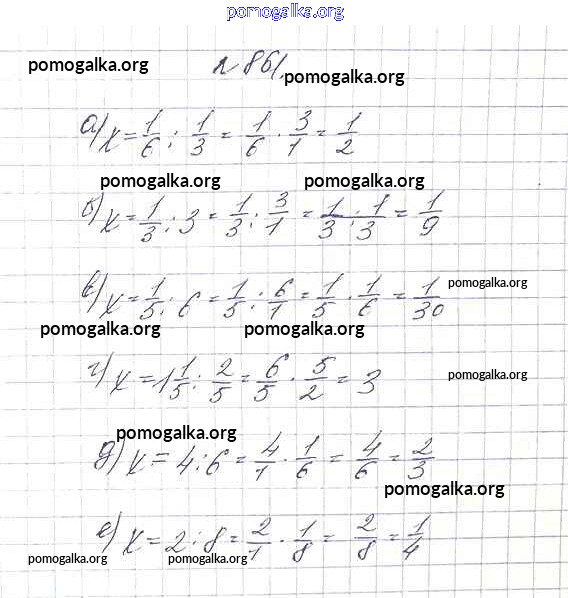 pomogalka.org
pomogalka.org № 861. pomogalka.org
а) x = 1/6 : 1/3 = 1/6 · 3/1 = 1/2
pomogalka.org pomogalka.org
б) x = 1/3 : 3 = 1/3 : 3/1 = 1/3 · 1/3 = 1/9
в) x = 1/5 : 6 = 1/5 : 6/1 = 1/5 · 1/6 = 1/30 pomogalka.org
pomogalka.org pomogalka.org
г) x = 1 1/5 : 2/5 = 6/5 · 5/2 = 3 pomogalka.org
pomogalka.org
д) x = 4 : 6 = 4/1 · 1/6 = 4/6 = 2/3
pomogalka.org
е) x = 2 : 8 = 2/1 · 1/8 = 2/8 = 1/4
pomogalka.org pomogalka.org